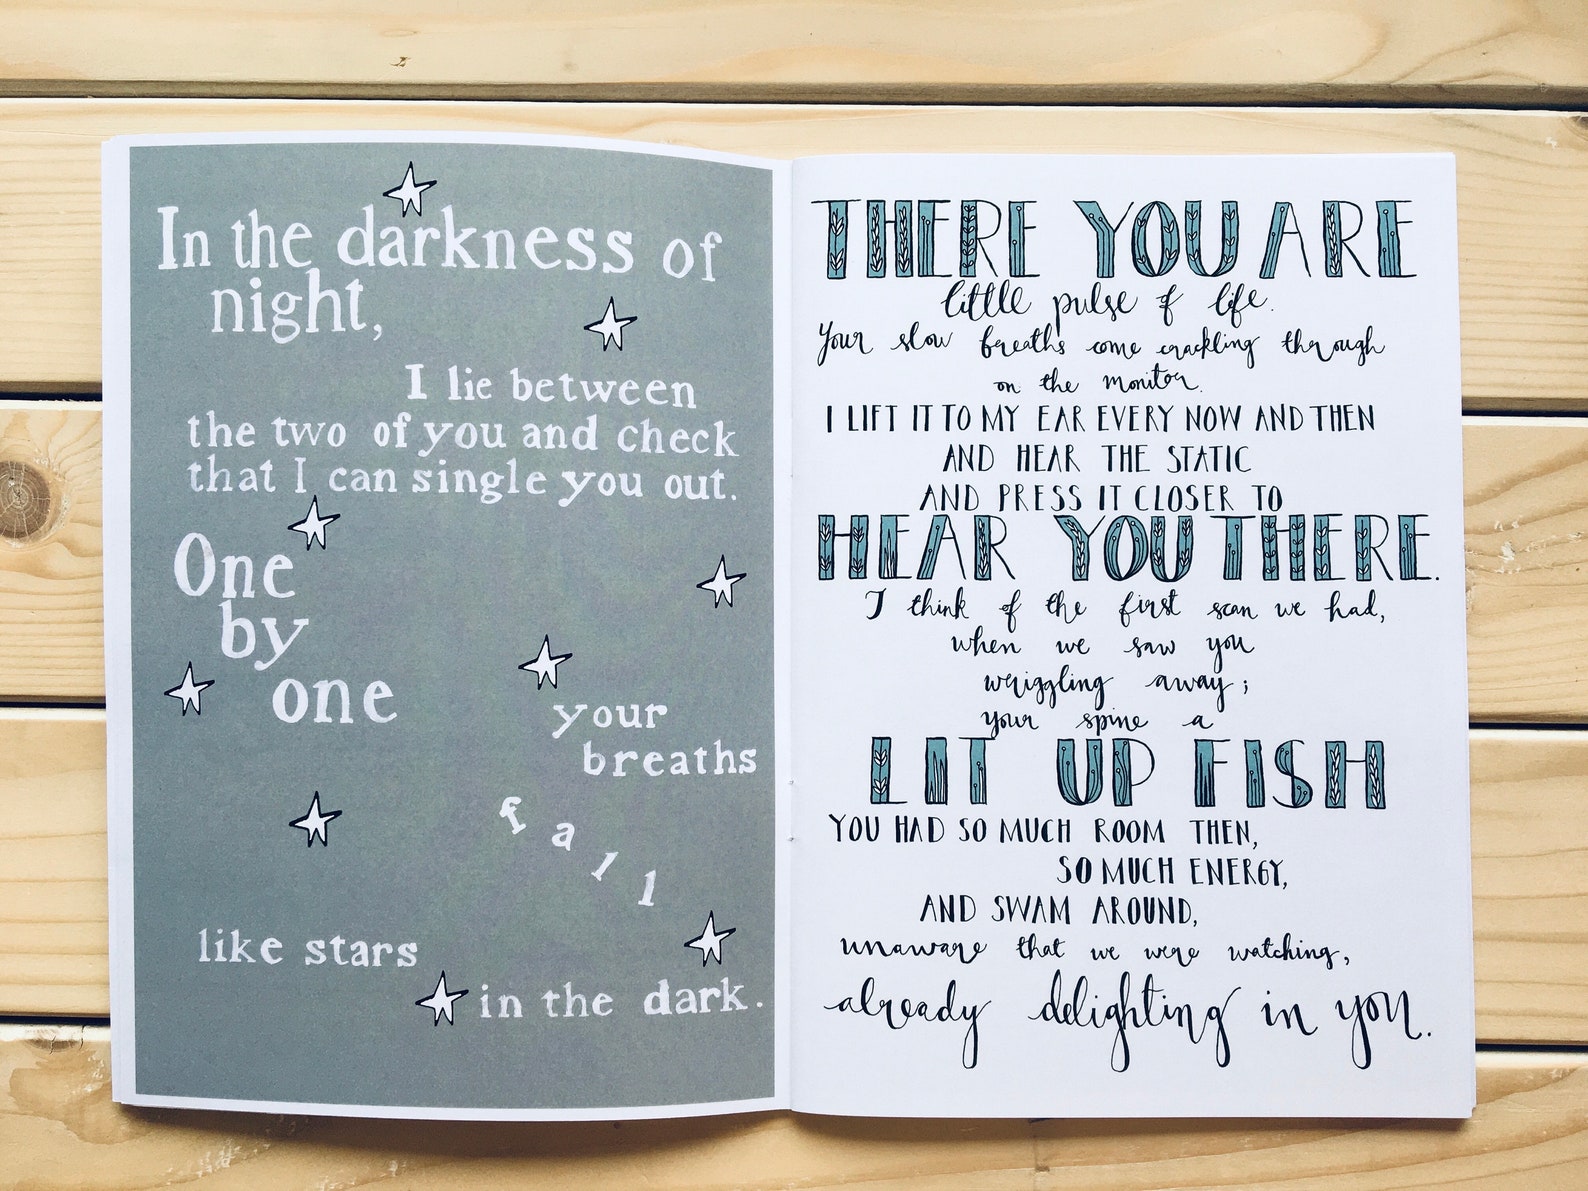 In the darkness of
night,
I lie between
the two of you and check
that I can single you out.
One
by
one
your
breaths
fall
like stars
in the dark.
THERE YOU ARE
little pulse of life.
Your slow breaths come crackling through
on the monitor.
I LIFT IT TO MY EAR EVERY NOW AND THEN
AND HEAR THE STATIC
AND PRESS IT CLOSER TO
HEAR YOU THERE.
I think of the first scan we had,
when we saw you
wriggling away;
your spine a
LIT UP FISH
YOU HAD SO MUCH ROOM THEN,
SO MUCH ENERGY,
AND SWAM AROUND,
unaware that we were watching,
already delighting in you.